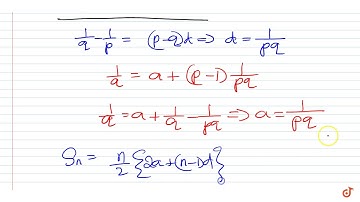 1/q - 1/p = (p-q)d ⇒ d = 1/pq
1/q = a + (p-1) 1/pq
1/q = a + 1/q - 1/pq ⇒ a = 1/pq
Sn = n/2 {2a+(n-1)d}